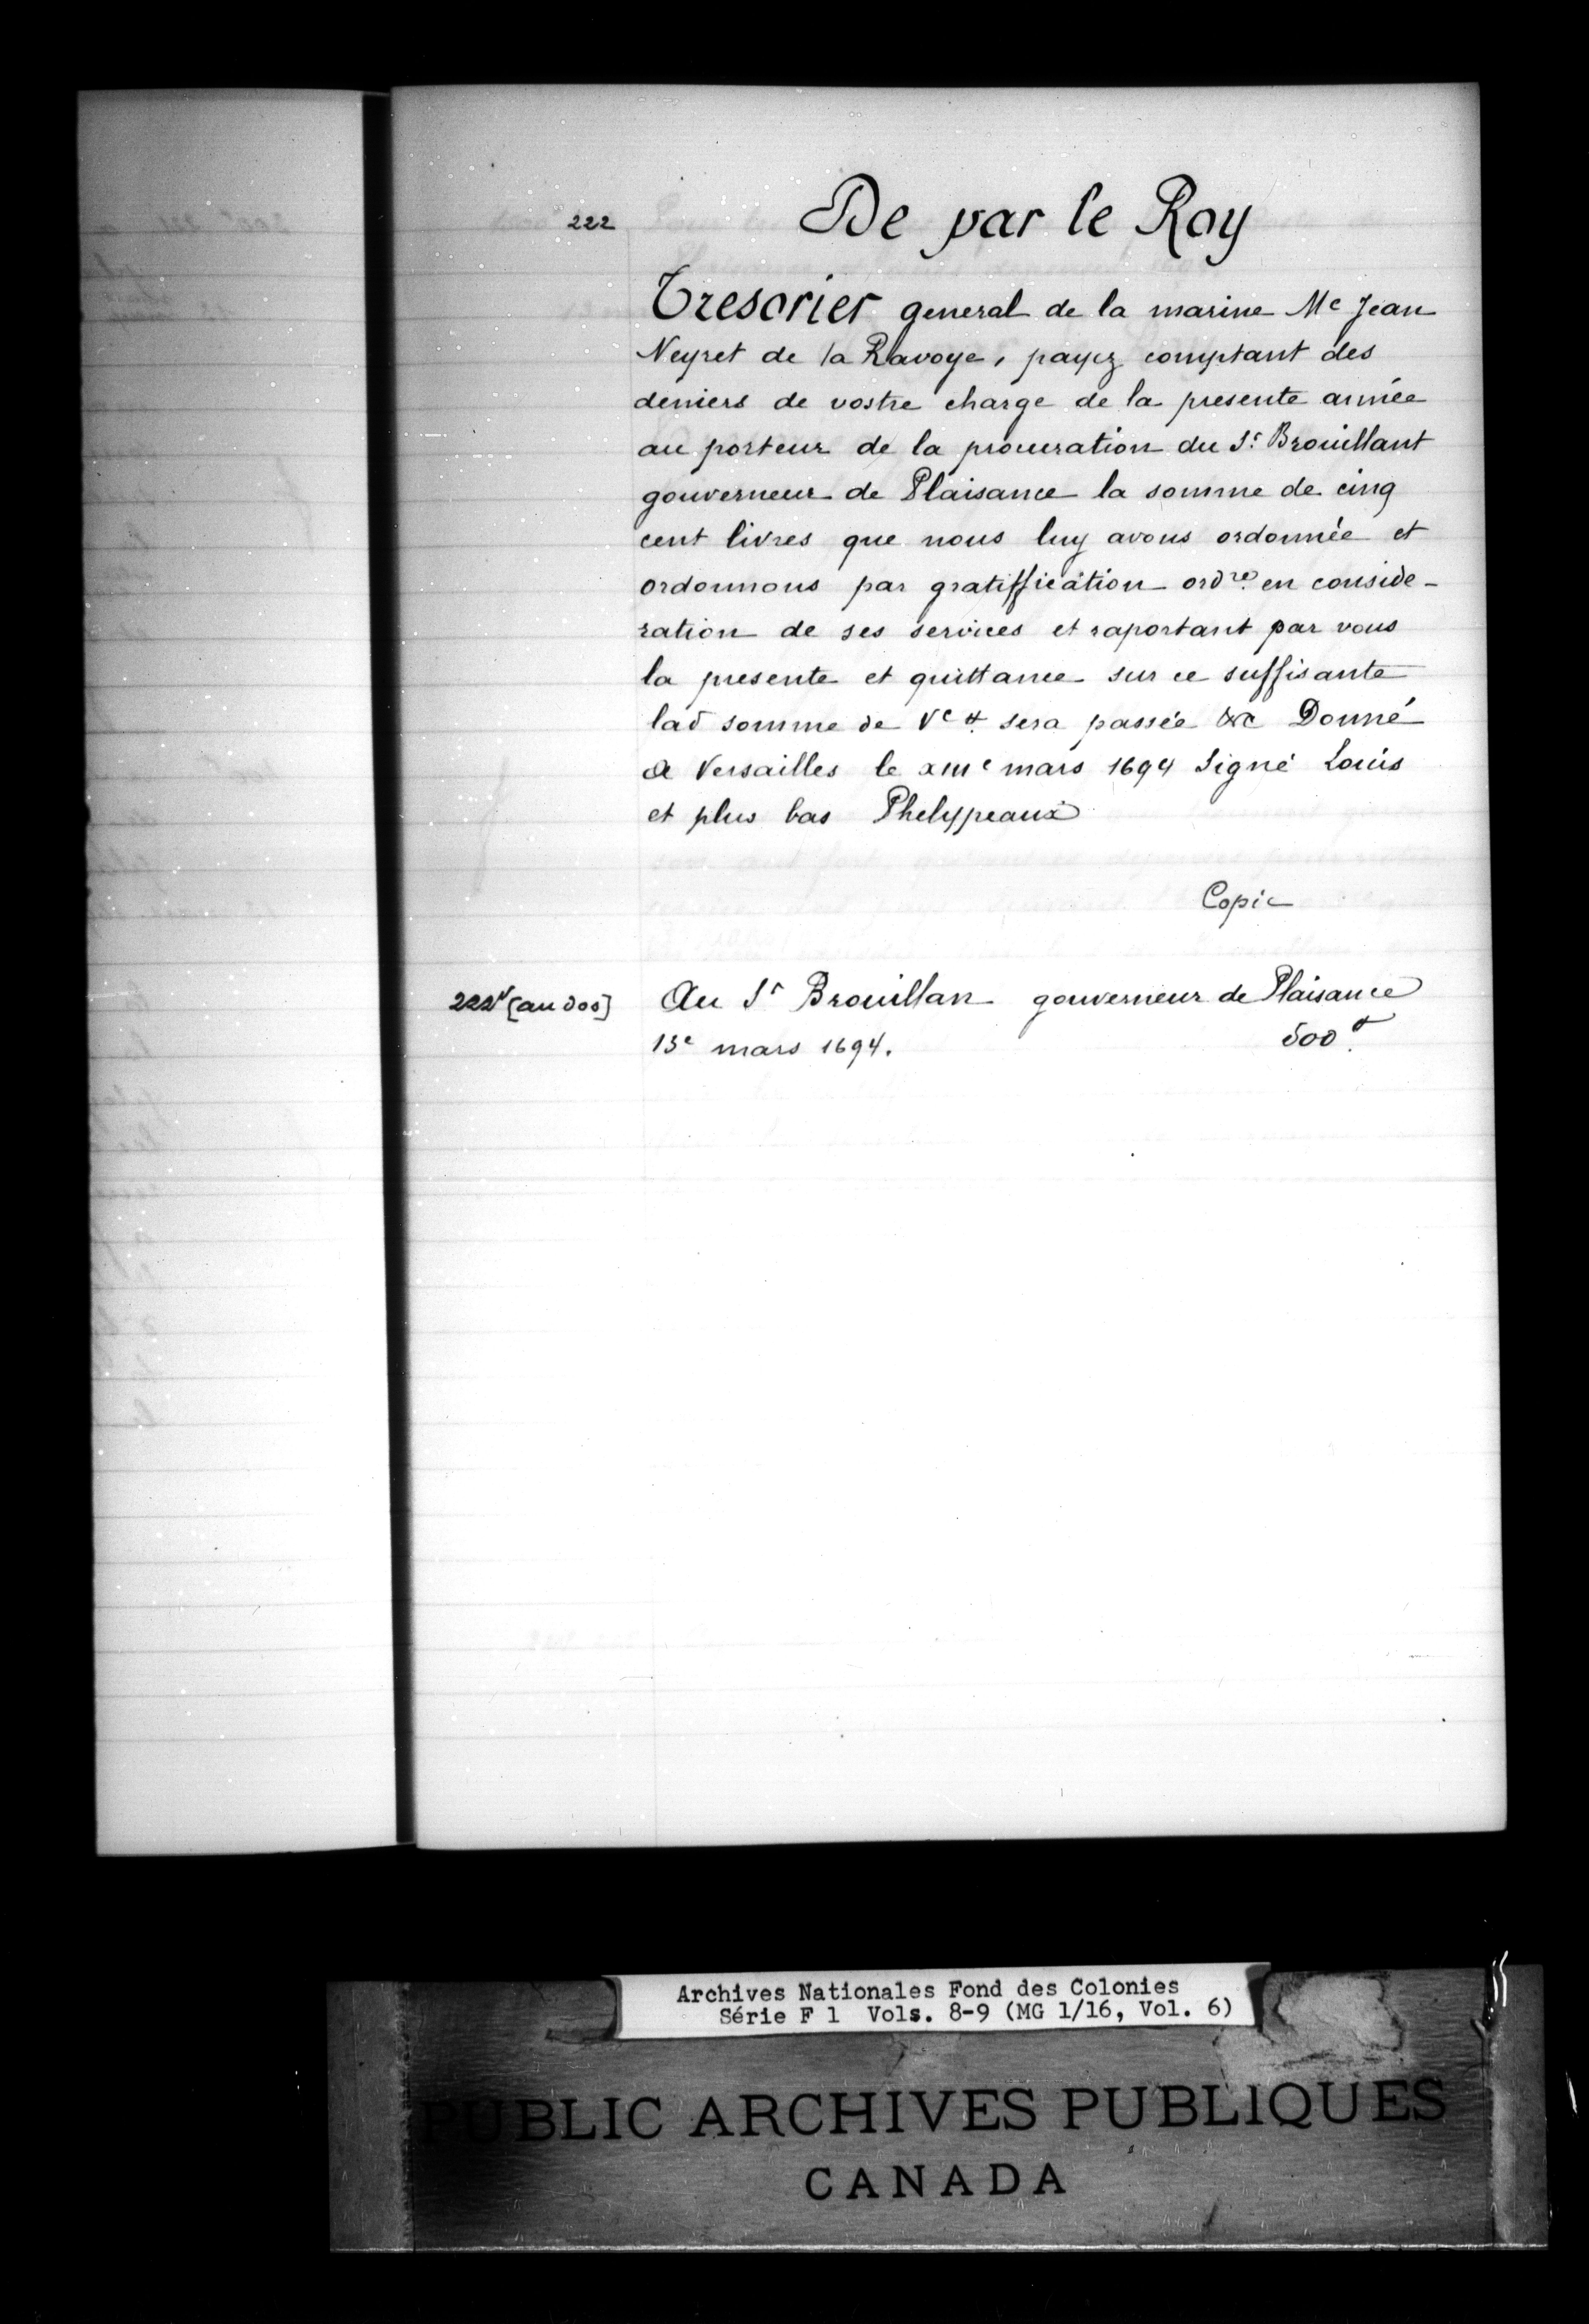 222
De par le Roy
Tresorier general de la marine Me Jean
Neyret de la Ravoye, payez comptant des
deniers de vostre charge de la presente année
au porteur de la procuration du Sr Brouillant
gouverneur de Plaisance la somme de cinq
cent livres que nous luy avons ordonnée et
ordonnons par gratiffication ordre en conside-
ration de ses services et raportant par vous
la presente et quittance sur ce suffisante
lad somme de Vc ₶ sera passée &c Donné
a Versailles le xiiie mars 1694 Signé Louis
et plus bas Phelypeaux
Copie
222v [au dos] Au Sr Brouillan gouverneur de Plaisance
13e mars 1694. 500 ₶
Archives Nationales Fond des Colonies
Série F 1 Vols. 8-9 (MG 1/16, Vol. 6)
PUBLIC ARCHIVES PUBLIQUES
CANADA